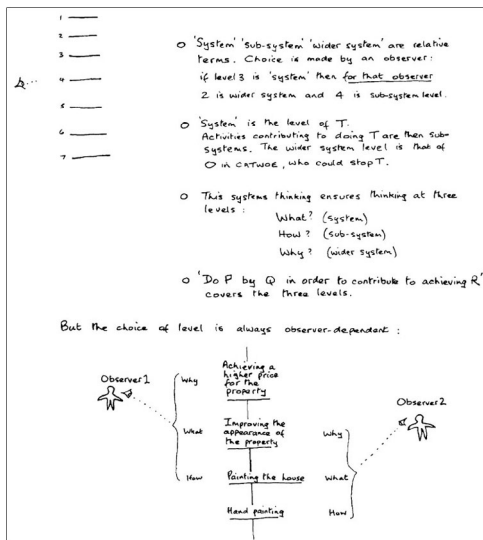 1
2
3
4
5
6
7
O 'System' 'sub-system' 'wider system' are relative
terms. Choice is made by an observer:
if level 3 is 'system' then for that observer
2 is wider system and 4 is sub-system level.
O 'System' is the level of T.
Activities contributing to doing T are then sub-
systems. The wider system level is that of
O in CATWOE, who could stop T.
O This systems thinking ensures thinking at three
levels:
What? (system)
How? (sub-system)
Why? (wider system)
O 'Do P by Q in order to contribute to achieving R'
covers the three levels.
But the choice of level is always observer-dependent:
Observer 1
Why
What
How
Achieving a
higher price
for the
property
Improving the
appearance of
the property
Painting the house
Hand painting
Observer 2
Why
What
How